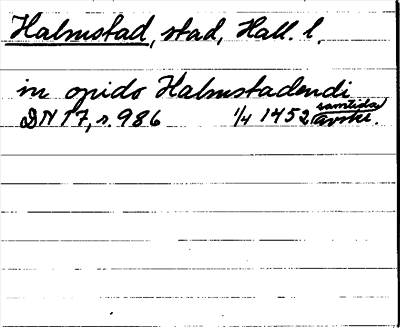 Halmstad, stad, Hall. l.
in opido Halmstadendi
DN 17, s. 986 1/4 1452 samtida avskr.